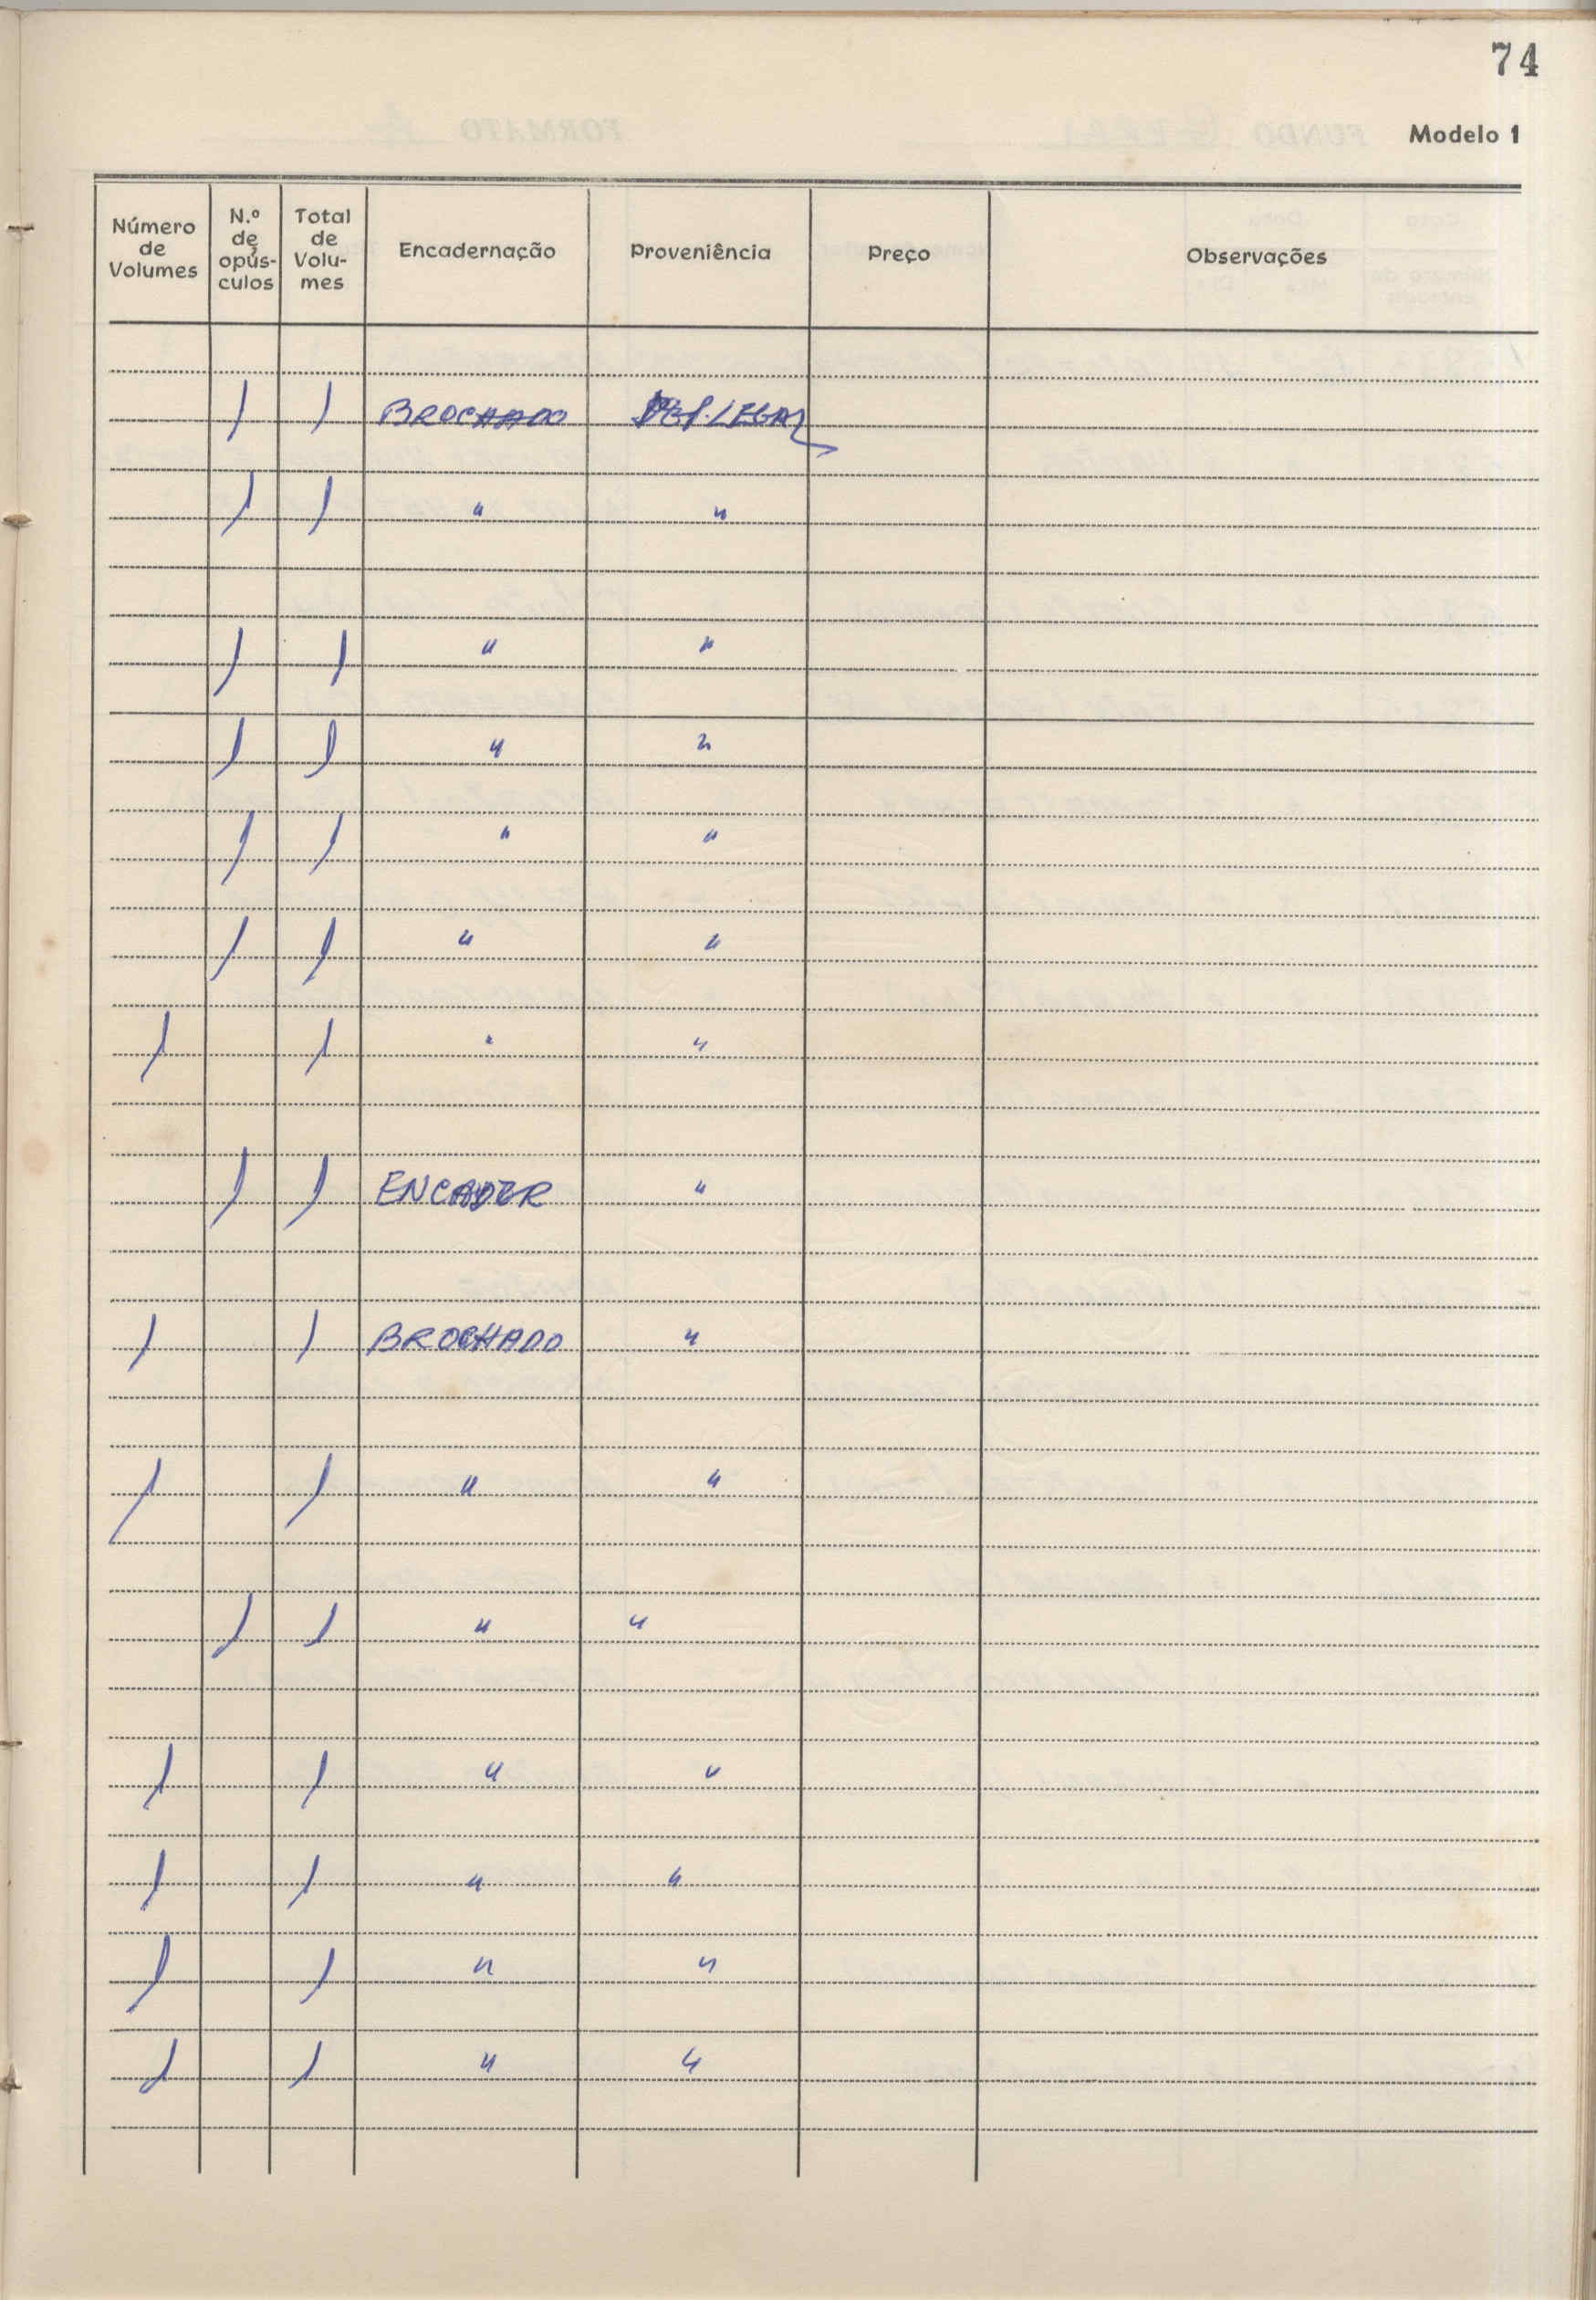 74
Modelo 1
Número de Volumes | N.º de opús-culos | Total de Volu-mes | Encadernação | Proveniência | Preço | Observações
1 1 BROCHADO DEP. LEGAL
1 1 " "
1 1 " "
1 1 " "
1 1 " "
1 1 " "
1 1 " "
1 1 ENCADER "
1 1 BROCHADO "
1 1 " "
1 1 " "
1 1 " "
1 1 " "
1 1 " "
1 1 " "